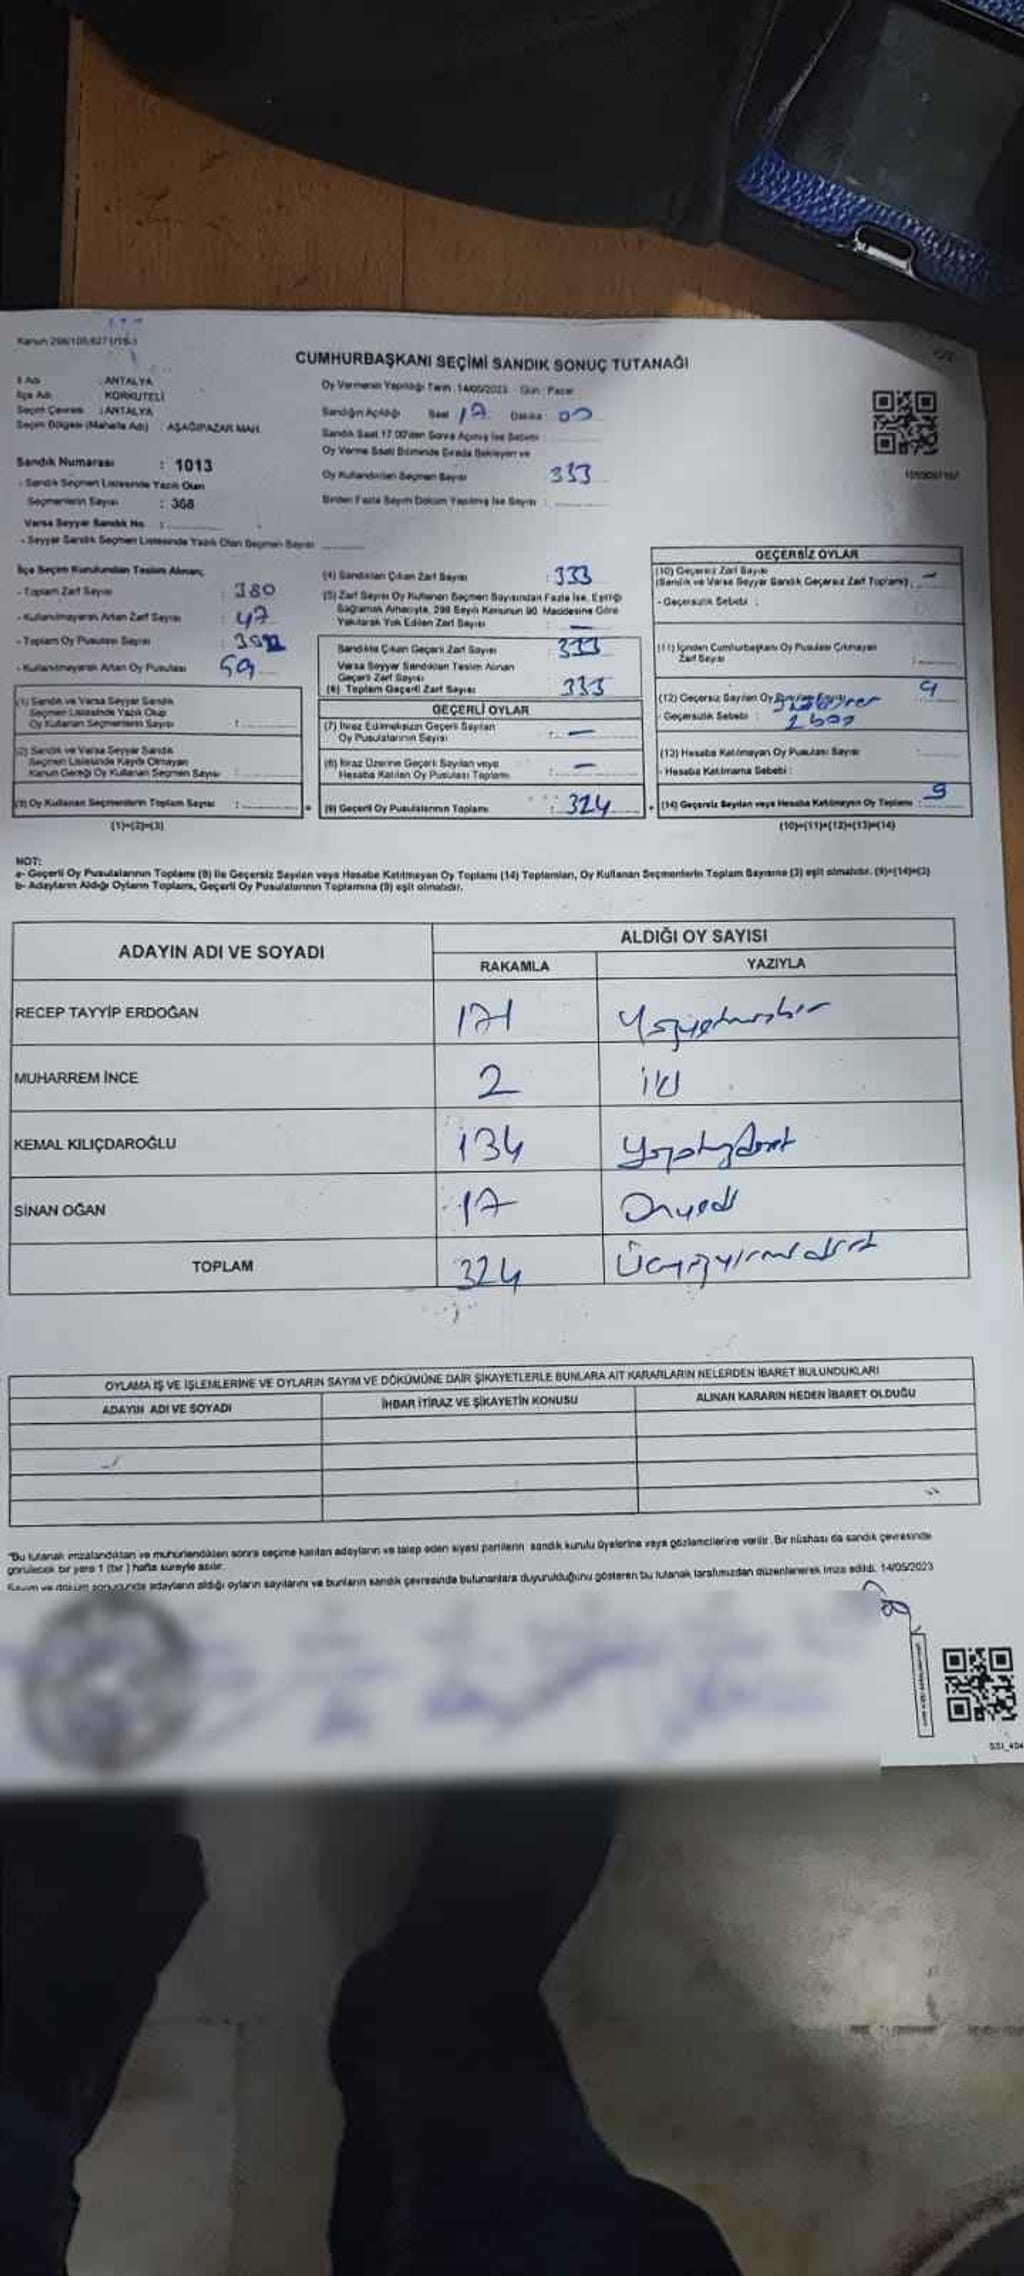 CUMHURBAŞKANI SEÇİMİ SANDIK SONUÇ TUTANAĞI
İl Adı : ANTALYA
İlçe Adı : KORKUTELİ
Seçim Çevresi : ANTALYA
Seçim Bölgesi (Mahalle Adı) : AŞAĞIPAZAR MAH.
Sandık Numarası : 1013
- Sandık Seçmen Listesinde Yazılı Olan
Seçmenlerin Sayısı : 368
Varsa Seyyar Sandık No :
- Seyyar Sandık Seçmen Listesinde Yazılı Olan Seçmen Sayısı
Oy Vermenin Yapıldığı Tarih : 14/05/2023 Gün : Pazar
Sandığın Açıldığı Saat 17 Dakika : 00
Sandık Saat 17.00'den Sonra Açılmış İse Sebebi :
Oy Verme Saati Bitiminde Sırada Bekleyen ve
Oy Kullandırılan Seçmen Sayısı 333
Birden Fazla Sayım Döküm Yapılmış İse Sayısı :
İlçe Seçim Kurulundan Teslim Alınan;
- Toplam Zarf Sayısı : 380
- Kullanılmayarak Artan Zarf Sayısı : 47
- Toplam Oy Pusulası Sayısı :
- Kullanılmayarak Artan Oy Pusulası 59
(1) Sandık ve Varsa Seyyar Sandık
Seçmen Listesinde Yazılı Olup
Oy Kullanan Seçmenlerin Sayısı :
(2) Sandık ve Varsa Seyyar Sandık
Seçmen Listesinde Kayıtlı Olmayan
Kanun Gereği Oy Kullanan Seçmen Sayısı :
(3) Oy Kullanan Seçmenlerin Toplam Sayısı :
(1)+(2)=(3)
(4) Sandıktan Çıkan Zarf Sayısı : 333
(5) Zarf Sayısı Oy Kullanan Seçmen Sayısından Fazla İse, Eşitliği
Sağlamak Amacıyla, 298 Sayılı Kanunun 90. Maddesine Göre
Yakılarak Yok Edilen Zarf Sayısı : —
Sandıkta Çıkan Geçerli Zarf Sayısı : 333
Varsa Seyyar Sandıktan Teslim Alınan
Geçerli Zarf Sayısı :
(6) Toplam Geçerli Zarf Sayısı : 333
GEÇERLİ OYLAR
(7) İtiraz Edilmeksizin Geçerli Sayılan
Oy Pusulalarının Sayısı : —
(8) İtiraz Üzerine Geçerli Sayılan veya
Hesaba Katılan Oy Pusulası Toplamı : —
(9) Geçerli Oy Pusulalarının Toplamı : 324
GEÇERSİZ OYLAR
(10) Geçersiz Zarf Sayısı
(Sandık ve Varsa Seyyar Sandık Geçersiz Zarf Toplamı) : —
- Geçersizlik Sebebi :
(11) İçinden Cumhurbaşkanı Oy Pusulası Çıkmayan
Zarf Sayısı :
(12) Geçersiz Sayılan Oy Pusulası Sayısı 9
- Geçersizlik Sebebi :
(13) Hesaba Katılmayan Oy Pusulası Sayısı
- Hesaba Katılmama Sebebi :
(14) Geçersiz Sayılan veya Hesaba Katılmayan Oy Toplamı : 9
(10)+(11)+(12)+(13)=(14)
NOT:
a- Geçerli Oy Pusulalarının Toplamı (9) ile Geçersiz Sayılan veya Hesaba Katılmayan Oy Toplamı (14) Toplamları, Oy Kullanan Seçmenlerin Toplam Sayısına (3) eşit olmalıdır. (9)+(14)=(3)
b- Adayların Aldığı Oyların Toplamı, Geçerli Oy Pusulalarının Toplamına (9) eşit olmalıdır.
ADAYIN ADI VE SOYADI
ALDIĞI OY SAYISI
RAKAMLA YAZIYLA
RECEP TAYYİP ERDOĞAN 171 Yüzyetmişbir
MUHARREM İNCE 2 iki
KEMAL KILIÇDAROĞLU 134 Yüzotuzdört
SİNAN OĞAN 17 Onyedi
TOPLAM 324 Üçyüzyirmidört
OYLAMA İŞ VE İŞLEMLERİNE VE OYLARIN SAYIM VE DÖKÜMÜNE DAİR ŞİKAYETLERLE BUNLARA AİT KARARLARIN NELERDEN İBARET BULUNDUKLARI
ADAYIN ADI VE SOYADI İHBAR İTİRAZ VE ŞİKAYETİN KONUSU ALINAN KARARIN NEDEN İBARET OLDUĞU
"Bu tutanak imzalandıktan ve mühürlendikten sonra seçime katılan adayların ve talep eden siyasi partilerin sandık kurulu üyelerine veya gözlemcilerine verilir. Bir nüshası da sandık çevresinde
görülecek bir yere 1 (bir) hafta süreyle asılır.
Sayım ve döküm sonucunda adayların aldığı oyların sayılarını ve bunların sandık çevresinde bulunanlara duyurulduğunu gösteren bu tutanak tarafımızdan düzenlenerek imza edildi. 14/05/2023